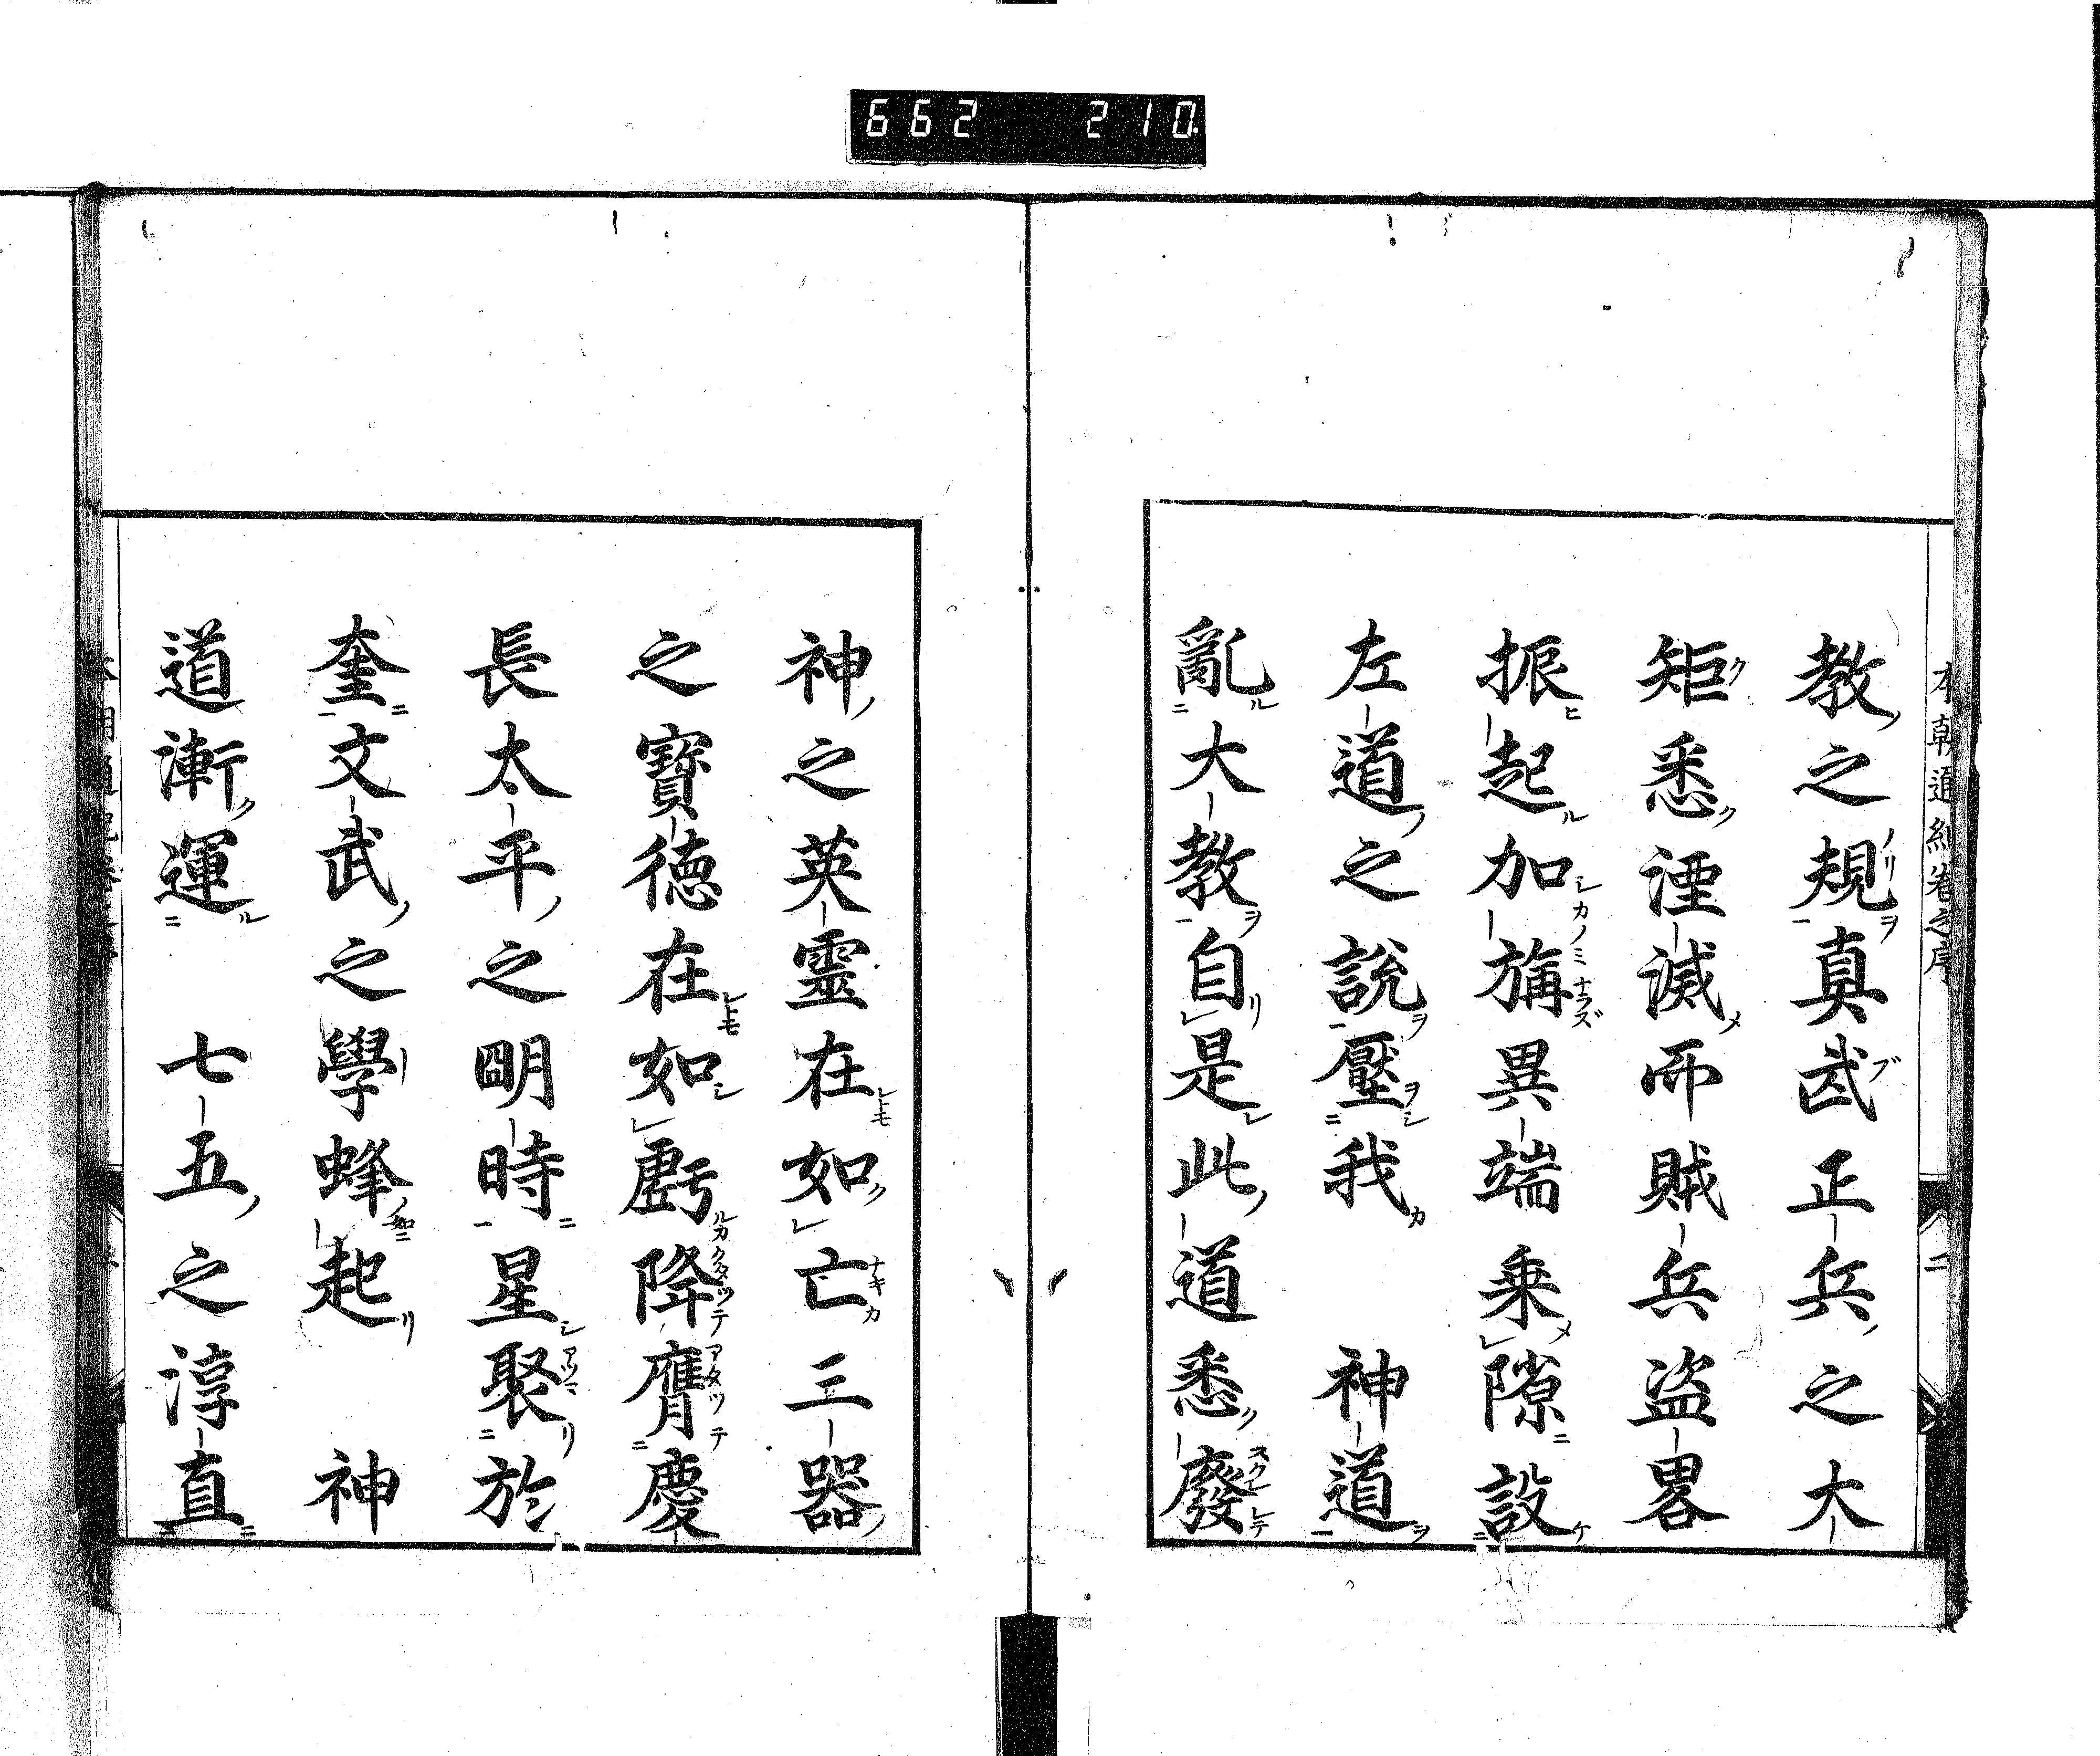 662 210
本朝通紀卷之序
二
教之規真武正兵之大
矩悉湮滅而賊兵盜畧
振起加旃異端乗隙設
左道之說壓我 神道
亂大教自是此道悉廢
神之英靈在如亡三器
之寶德在如虧降膺慶
長太平之明時星聚於
奎文武之學蜂起 神
道漸運 七五之淳直